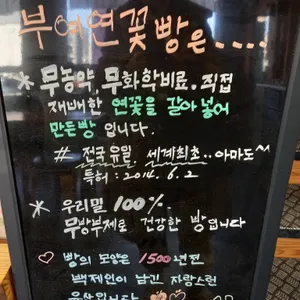 부여연꽃빵은....
* 무농약, 무화학비료. 직접
재배한 연꽃을 갈아 넣어
만든빵 입니다.
# 전국 유일. 세계최초..아마도^^
특허 : 2014. 6. 2
* 우리밀 100%.
무방부제로 건강한 빵입니다
♡ 빵의 모양은 1500년전
백제인이 남긴 자랑스런